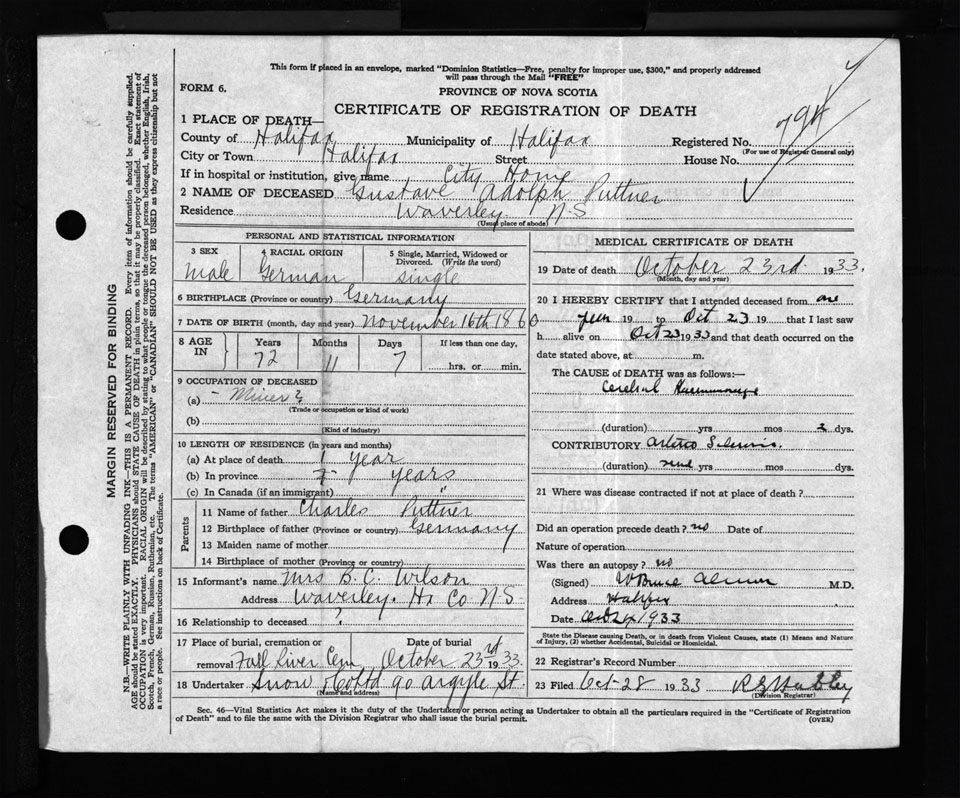 This form if placed in an envelope, marked "Dominion Statistics—Free, penalty for improper use, $300," and properly addressed
will pass through the Mail "FREE"
FORM 6.
PROVINCE OF NOVA SCOTIA
CERTIFICATE OF REGISTRATION OF DEATH
794
1 PLACE OF DEATH—
County of Halifax Municipality of Halifax Registered No.
(For use of Registrar General only)
City or Town Halifax Street House No.
If in hospital or institution, give name City Home
2 NAME OF DECEASED Gustave Adolph Puttner
Residence Waverley. N.S
(Usual place of abode)
MARGIN RESERVED FOR BINDING
N.B.—WRITE PLAINLY WITH UNFADING INK—THIS IS A PERMANENT RECORD. Every item of information should be carefully supplied.
AGE should be stated EXACTLY. PHYSICIANS should STATE CAUSE OF DEATH in plain terms, so that it may be properly classified. Exact statement of
OCCUPATION is very important. RACIAL ORIGIN will be described by stating to what people or tongue the deceased person belonged, whether English, Irish,
Scotch, French, German, Russian, Ruthenian, etc. The terms "AMERICAN" or "CANADIAN" SHOULD NOT BE USED as they express citizenship but not
a race or people. See instructions on back of Certificate.
PERSONAL AND STATISTICAL INFORMATION
3 SEX
male
4 RACIAL ORIGIN
German
5 Single, Married, Widowed or
Divorced. (Write the word)
single
6 BIRTHPLACE (Province or country) Germany
7 DATE OF BIRTH (month, day and year) November 16th 1860
8 AGE IN
Years Months Days If less than one day,
72 11 7 hrs. or min.
9 OCCUPATION OF DECEASED
(a) - Miner
(Trade or occupation or kind of work)
(b)
(Kind of industry)
10 LENGTH OF RESIDENCE (in years and months)
(a) At place of death 1 year
(b) In province years
(c) In Canada (if an immigrant) "
Parents
11 Name of father Charles Puttner
12 Birthplace of father (Province or country) Germany
13 Maiden name of mother
14 Birthplace of mother (Province or country)
15 Informant's name Mrs B. C. Wilson
Address Waverley. Hx Co N.S.
16 Relationship to deceased ?
17 Place of burial, cremation or Date of burial
removal Fall River Cem October 23rd 1933.
18 Undertaker Snow & Co Ltd 90 Argyle St.
(Name and address)
MEDICAL CERTIFICATE OF DEATH
19 Date of death October 23rd 1933.
(Month, day and year)
20 I HEREBY CERTIFY that I attended deceased from one
year 19 to Oct 23 19 that I last saw
h alive on Oct 23 1933 and that death occurred on the
date stated above, at m.
The CAUSE of DEATH was as follows:—
Cerebral Haemorrhage
(duration) yrs mos 2 dys.
CONTRIBUTORY Arterio Sclerosis.
(duration) yrs mos dys.
21 Where was disease contracted if not at place of death?
Did an operation precede death? no Date of
Nature of operation
Was there an autopsy? no
(Signed) W Bruce Almon M.D.
Address Halifax
Date Oct 24 1933
State the Disease causing Death, or in death from Violent Causes, state (1) Means and Nature
of Injury, (2) whether Accidental, Suicidal or Homicidal.
22 Registrar's Record Number
23 Filed Oct-28 1933
(Division Registrar)
Sec. 46—Vital Statistics Act makes it the duty of the Undertaker or person acting as Undertaker to obtain all the particulars required in the "Certificate of Registration
of Death" and to file the same with the Division Registrar who shall issue the burial permit. (OVER)